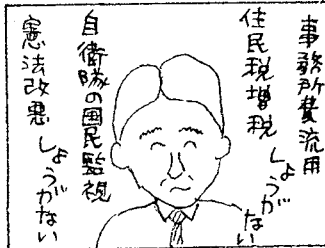 事務所費流用
住民税増税
しょうがない
自衛隊の国民監視
憲法改悪
しょうがない